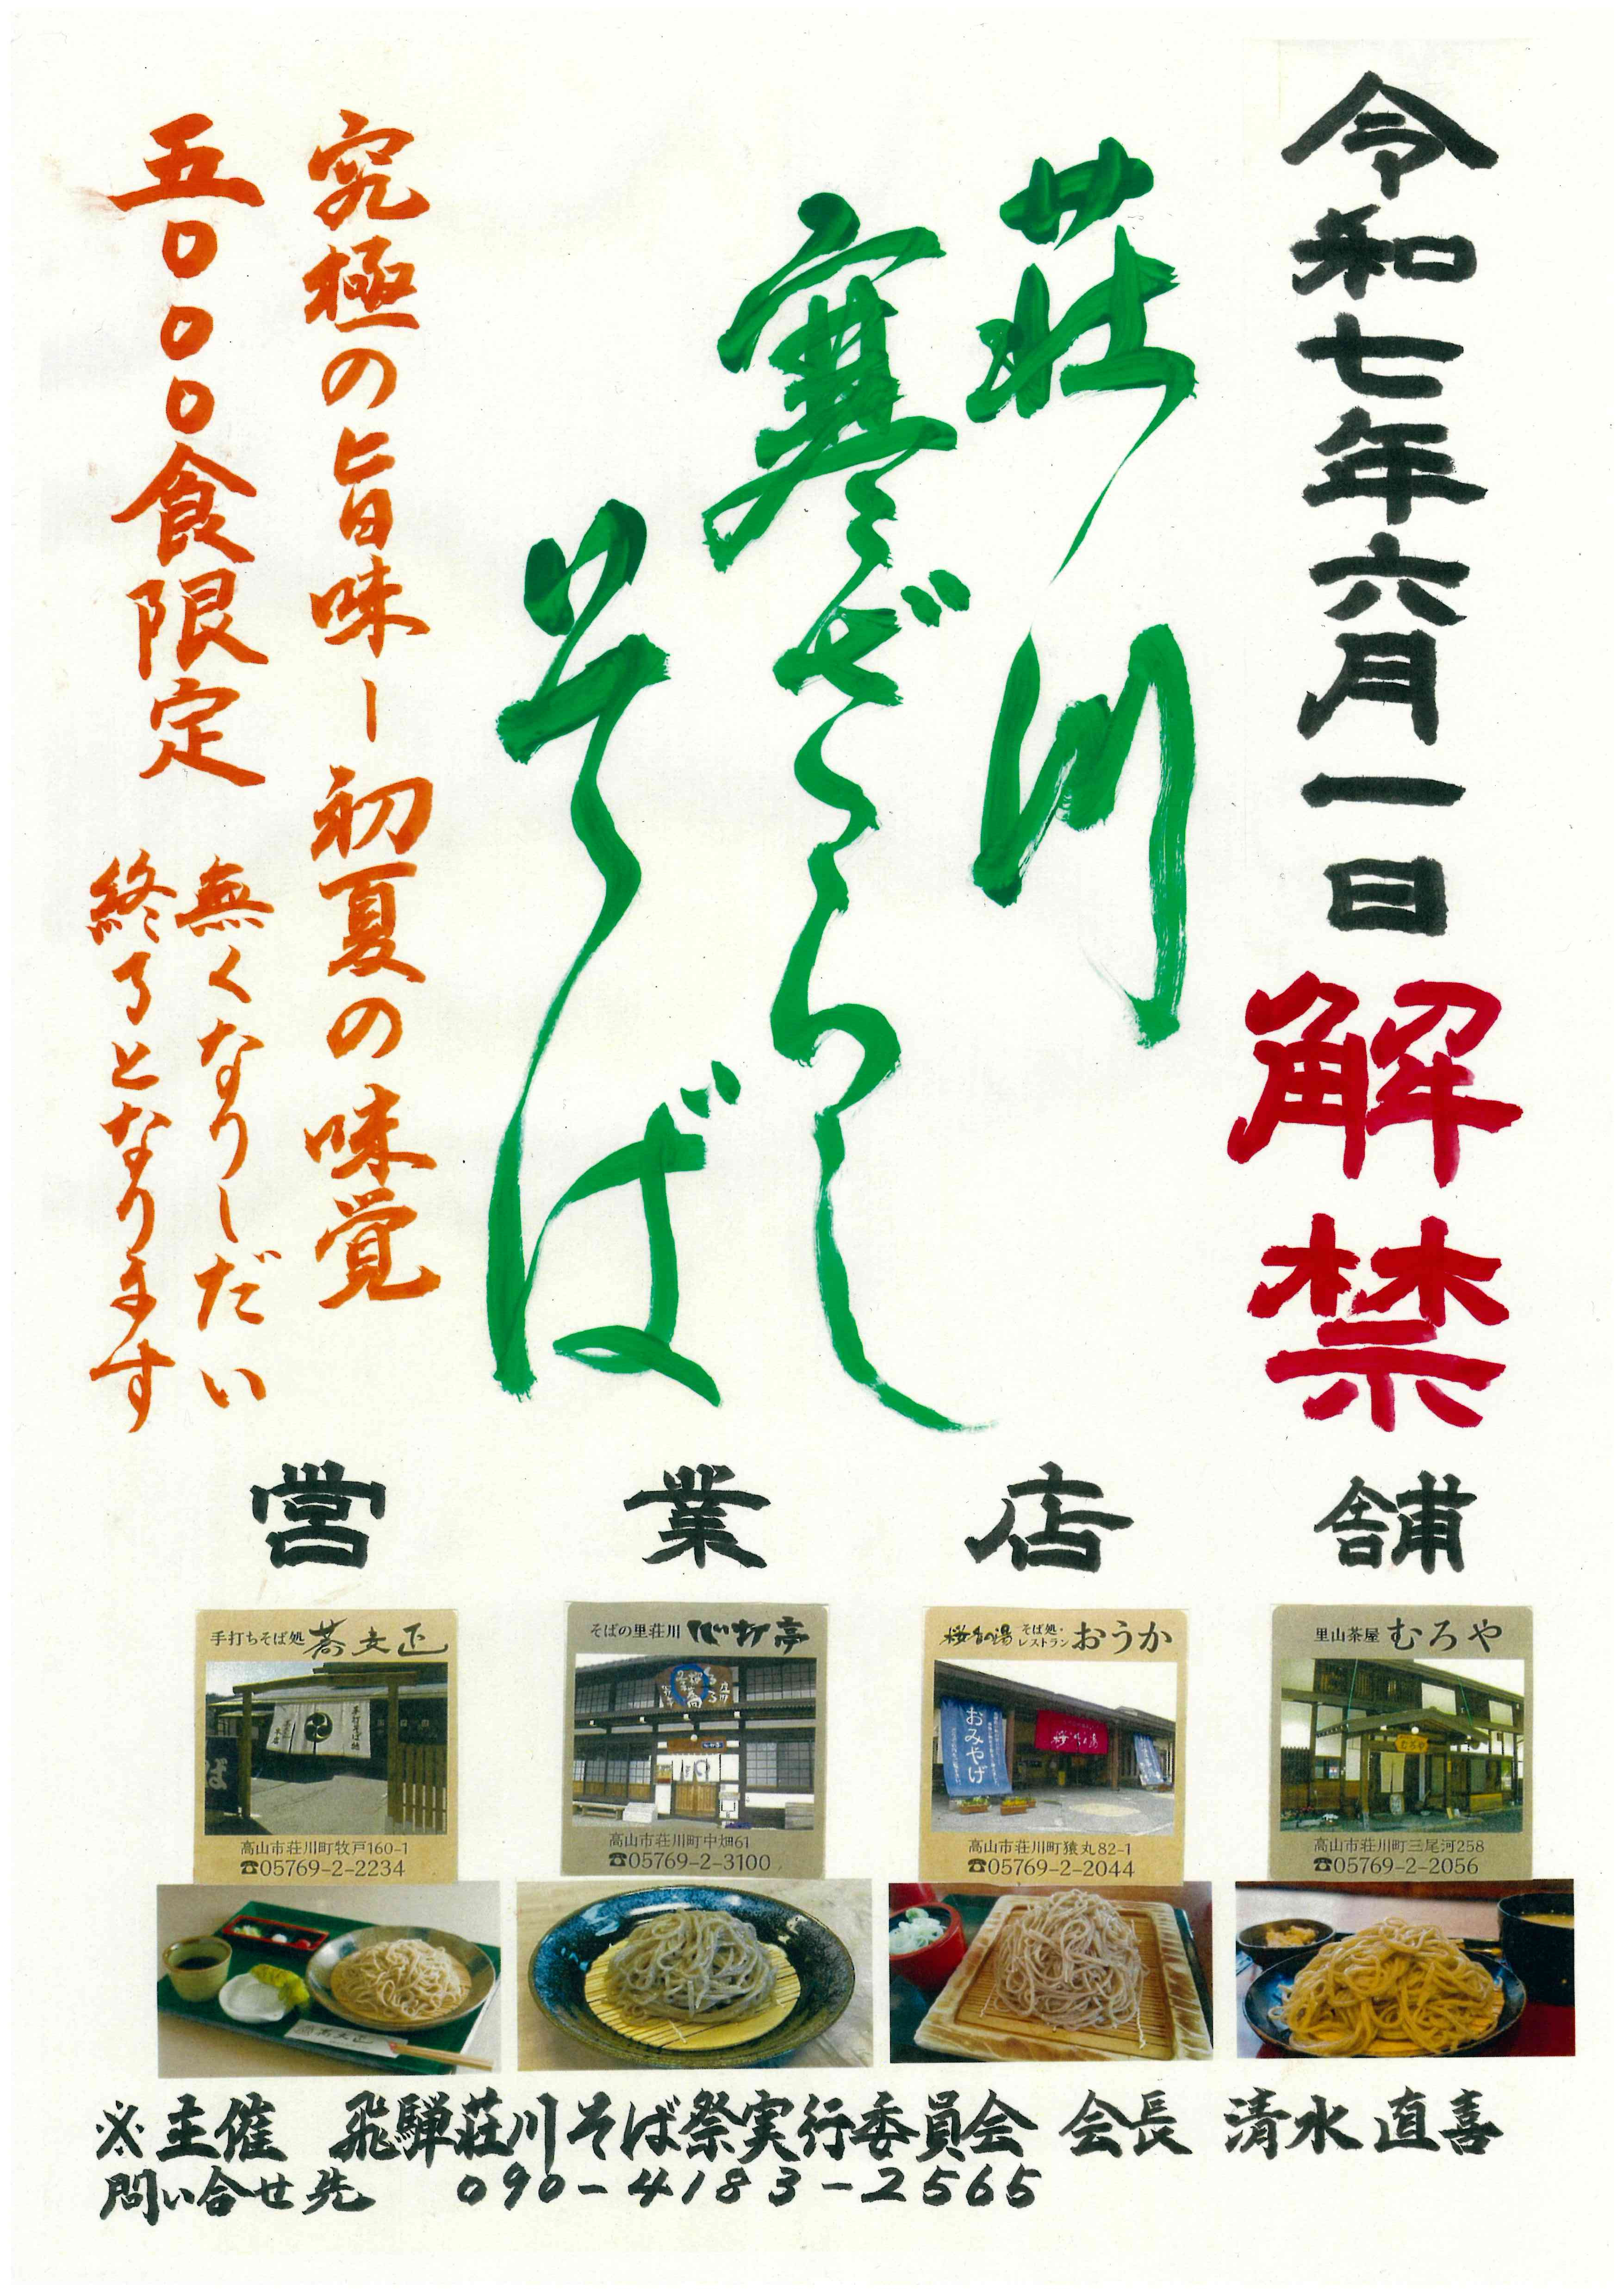 令和七年六月一日 解禁
荘川
寒ざらし
そば
究極の旨味ー初夏の味覚
五〇〇〇食限定
無くなりしだい
終了となります
営業店舗
手打ちそば処 蕎麦正
手打そば処
高山市荘川町牧戸160-1
☎05769-2-2234
そばの里荘川 心打亭
高山市荘川町中畑61
☎05769-2-3100
桜香の湯 そば処・レストラン おうか
おみやげ
桜香の湯
高山市荘川町猿丸82-1
☎05769-2-2044
里山茶屋 むろや
むろや
高山市荘川町三尾河258
☎05769-2-2056
蕎麦正
※主催 飛騨荘川そば祭実行委員会 会長 清水直喜
問い合せ先 090-4183-2565